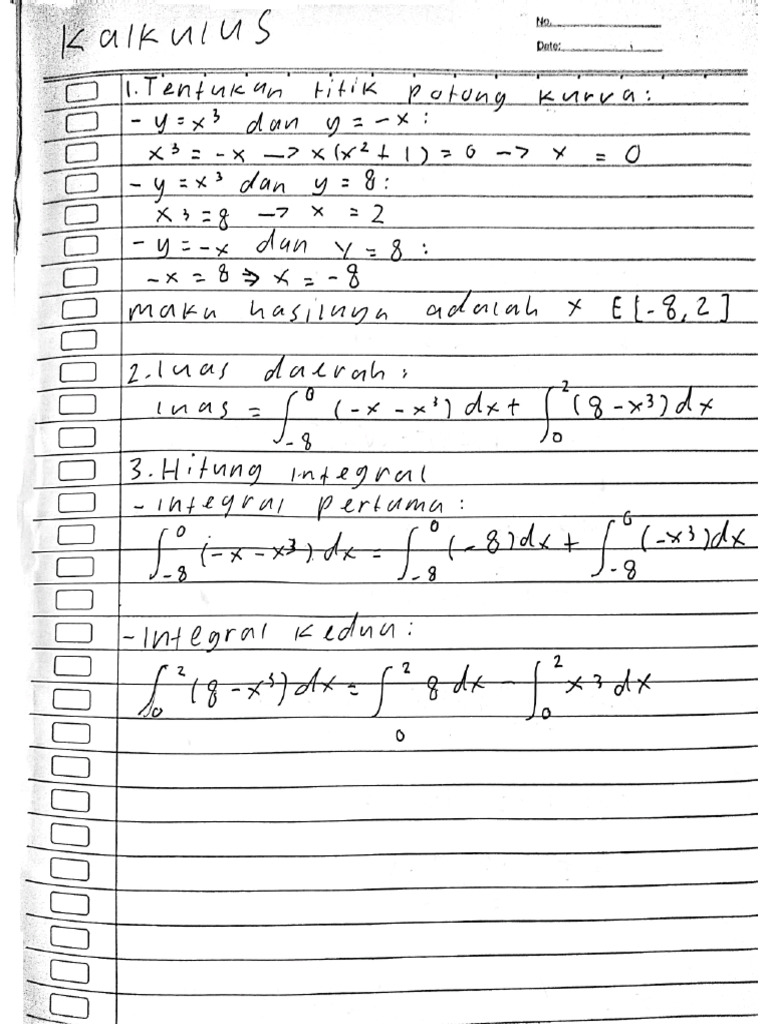 Kalkulus
No.
Date:
1. Tentukan titik potong kurva:
- y = x³ dan y = -x :
x³ = -x -> x(x² + 1) = 0 -> x = 0
- y = x³ dan y = 8 :
x³ = 8 -> x = 2
- y = -x dan y = 8 :
-x = 8 => x = -8
maka hasilnya adalah x E [-8, 2]
2. luas daerah :
luas = ∫₋₈⁰ (-x - x³) dx + ∫₀² (8 - x³) dx
3. Hitung integral
- integral pertama :
∫₋₈⁰ (-x - x³) dx = ∫₋₈⁰ (-8) dx + ∫₋₈⁰ (-x³) dx
- Integral kedua :
∫₀² (8 - x³) dx = ∫₀² 8 dx - ∫₀² x³ dx